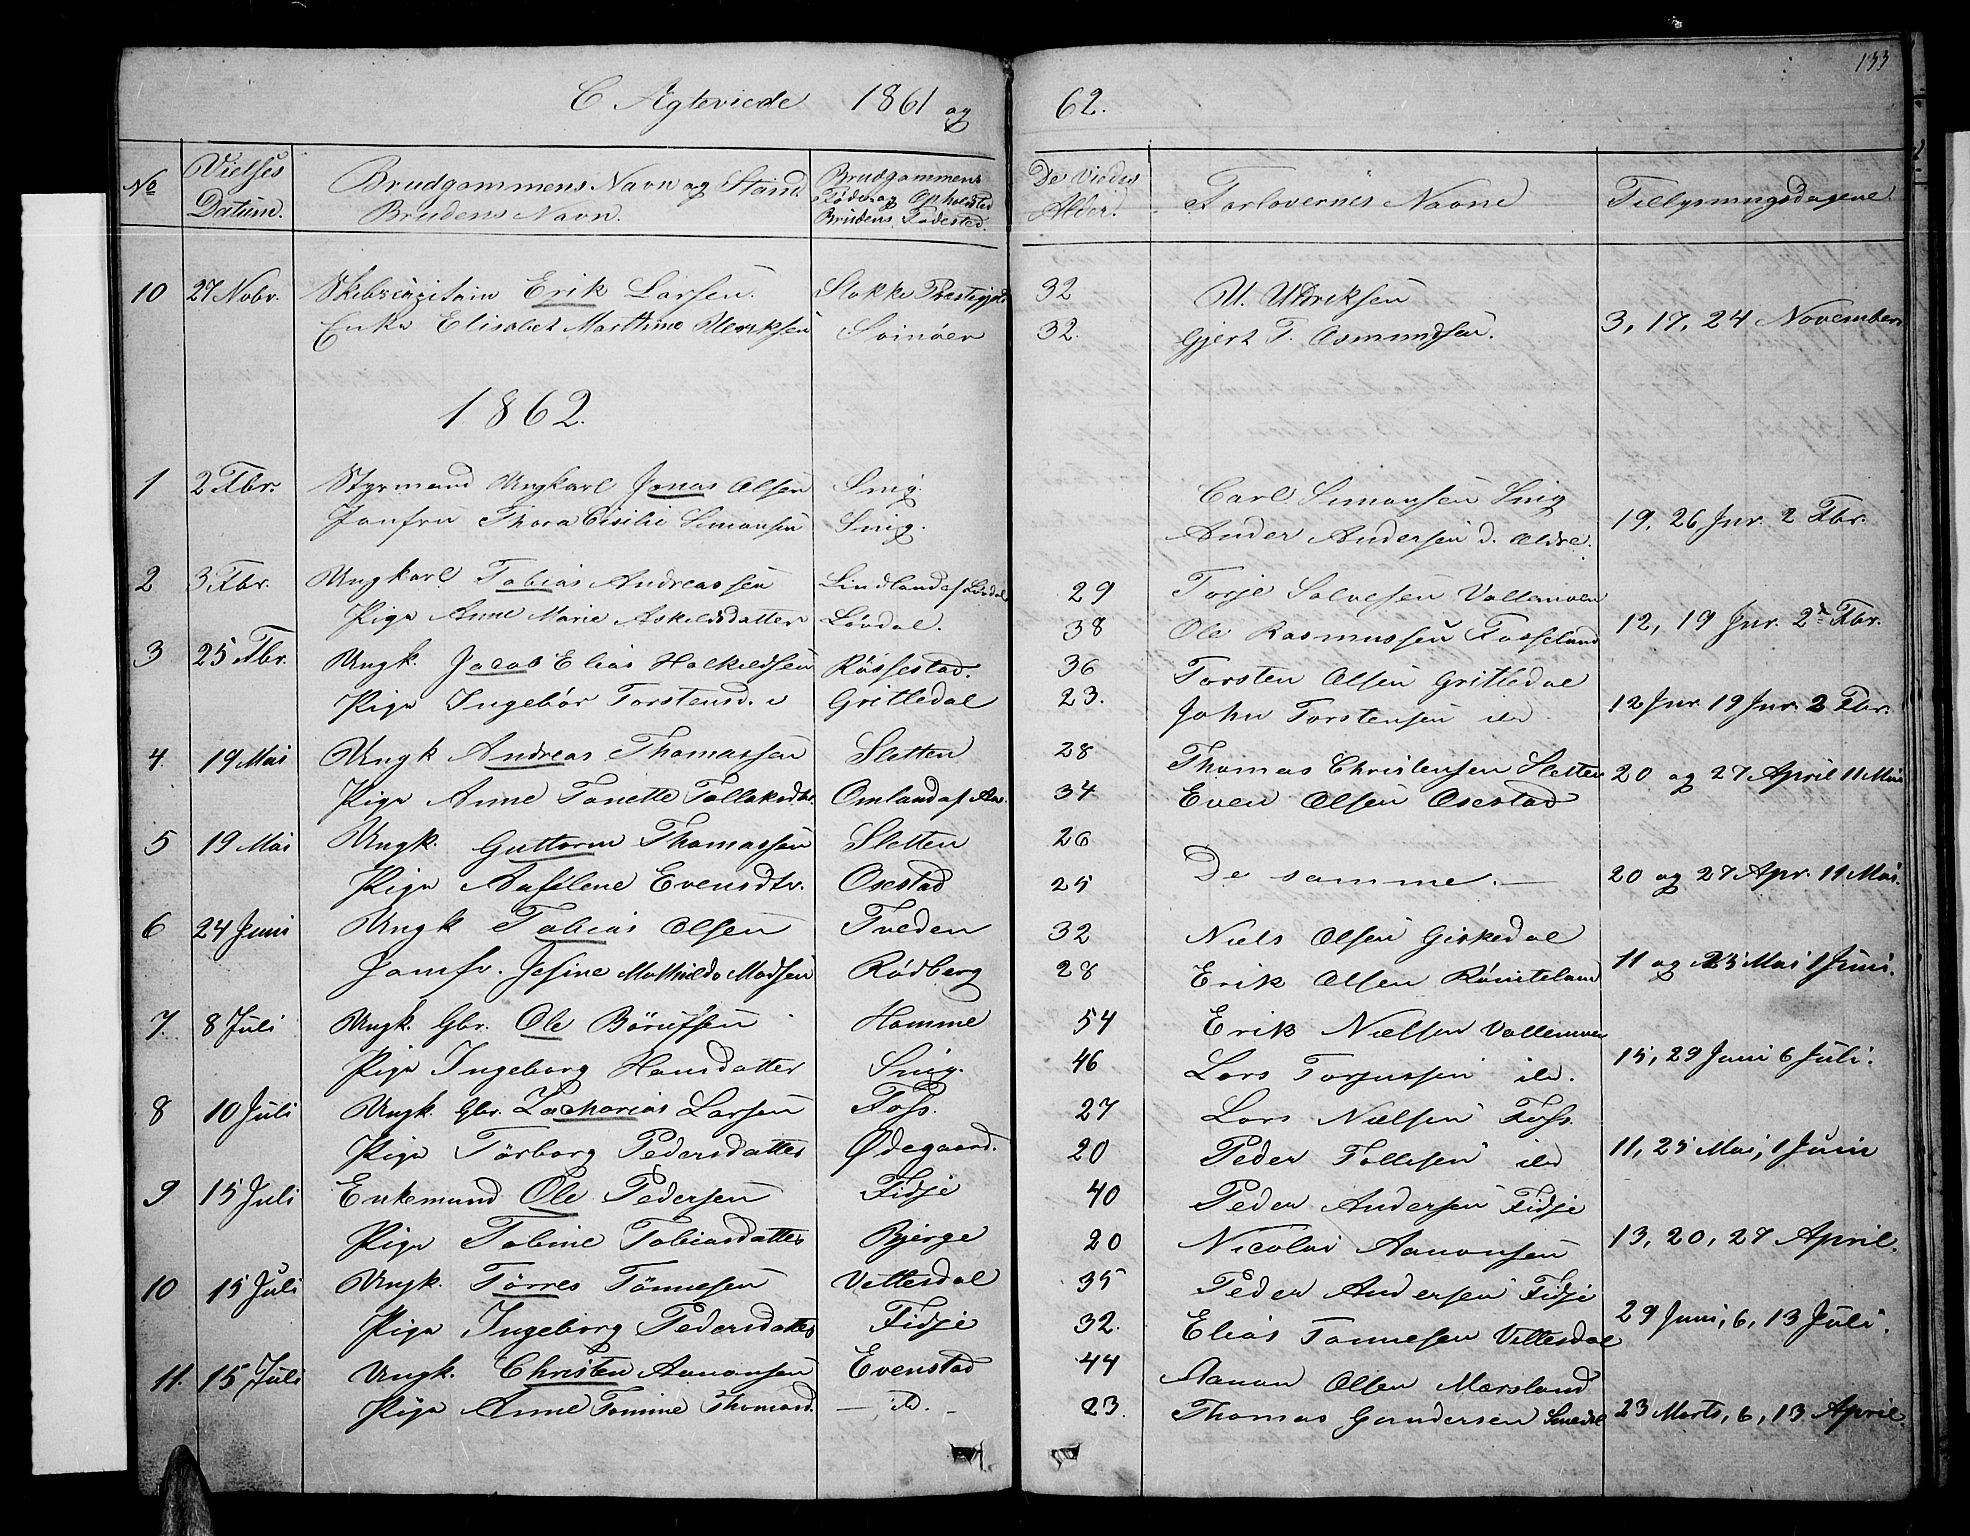 133
C Ægteviede 1861 og 62.
No
Vielses Datum.
Brudgommens Navn og Stand
Brudens Navn.
Brudgommens Føde og Opholdsted
Brudens Fødested.
De Viedes Alder.
Forlovernes Navne
Tillysningsdagene
10 27 Nobr. Skibscapitain Erik Larsen. Stokke Præstegjeld 32 U. Udriksen
Enke Elisabet Marthine Ulriksen Svinøer 32. Gjert T. Osmundsen. 3, 17, 24 November
1862.
1 2 Fbr. Styrmand Ungkarl Jonas Olsen Snig. Carl Simonsen Snig
Jomfru Thora Cisilie Simonsen Snig. Ander Andersen d. Ældre. 19, 26 Jnr. 2 Fbr.
2 3 Fbr. Ungkarl Tobias Andreassen Lindland af Løvdal 29 Torje Salvesen Vallemoen
Pige Anne Marie Askildsdatter Løvdal. 38 Ole Rasmussen Fosseland 12, 19 Jnr. 2 Fbr.
3 25 Fbr. Ungk. Jacob Elias Halkildsen Røssestad. 36 Torsten Olsen Gritledal
Pige Ingebor Torstensd. Gritledal 23. John Torstensen ibd 12 Jnr. 19 Jnr. 2 Fbr.
4. 19 Mai Ungk Andreas Thomassen Sletten 28 Thomas Christensen Sletten
Pige Anne Tonette Tollaksdtr. Omland af Aas. 34 Even Olsen Osestad 20 og 27 April 11 Mai
5 19 Mai Ungk. Guttorm Thomassen Sletten 26
Pige Aaselene Evensdtr. Osestad 25 De samme. 20 og 27 Apr. 11 Mai.
6 24 Juni Ungk Tobias Olsen Tveden 32 Niels Olsen Giskedal
Jomfr. Josine Mathilde Madsen Rødberg 28 Erik Olsen 11 og 25 Mai 1 Juni.
7. 8 Juli Ungk. Gbr. Ole Børufsen Homme 54 Erik Nielsen Vallemoen
Pige Ingeborg Hansdatter Snig. 46 Lars Torjussen ibd. 15, 29 Juni 6 Juli.
8 10 Juli Ungk. Gbr. Zacharias Larsen Foss. 27 Lars Nielsen Foss
Pige Torborg Pedersdatter Ødegaard. 20 Peder Tollefsen ibd 11, 25 Mai, 1 Juni
9 15 Juli Enkemand Ole Pedersen Fidje 40 Peder Andersen Fidje
Pige Tobine Tobiasdatter Bjerge 20 Nicolai Aanonsen 13, 20, 27 April.
10 15 Juli Ungk. Tørres Tønnesen Vettesdal 35 Peder Andersen Fidje
Pige Ingeborg Pedersdatter Fidje 32. Elias Tønnesen Vettesdal 29 Juni, 6, 13 Juli.
11. 15 Juli Ungk. Christen Aanonsen Evenstad 44 Aanon Olsen Mærsland
Pige Anne Tomine Thomasd. — D. — 23. Thomas Gundersen Smedal 23 Marts, 6, 13 April.